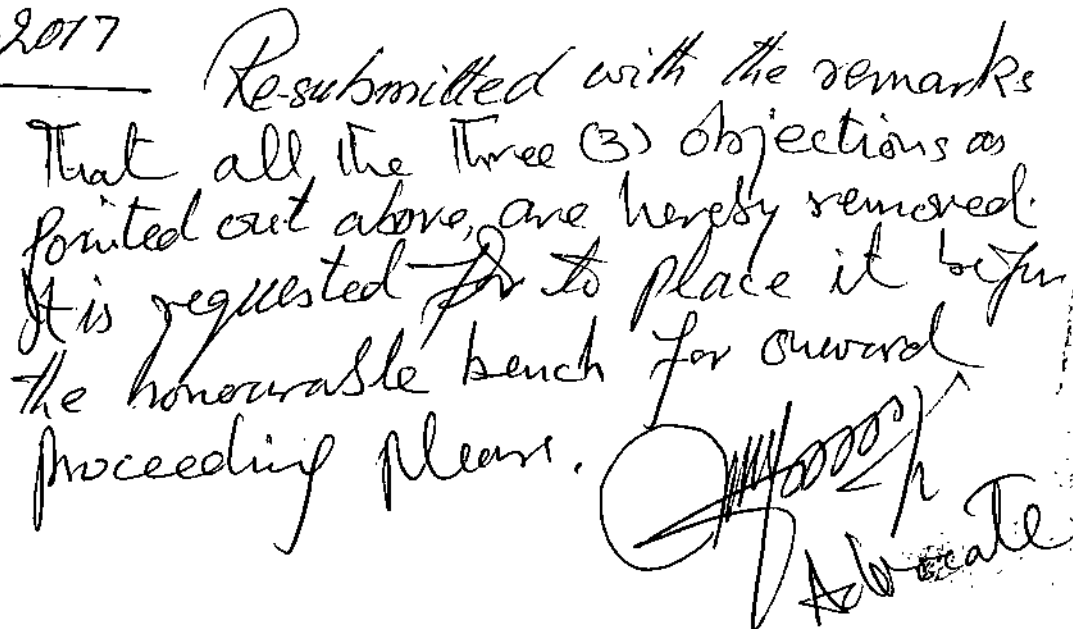 2017
Re-submitted with the remarks
That all the Three (3) objections as
pointed out above, are hereby removed.
It is requested for to place it before
the honourable bench for onward
proceeding please.
Advocate